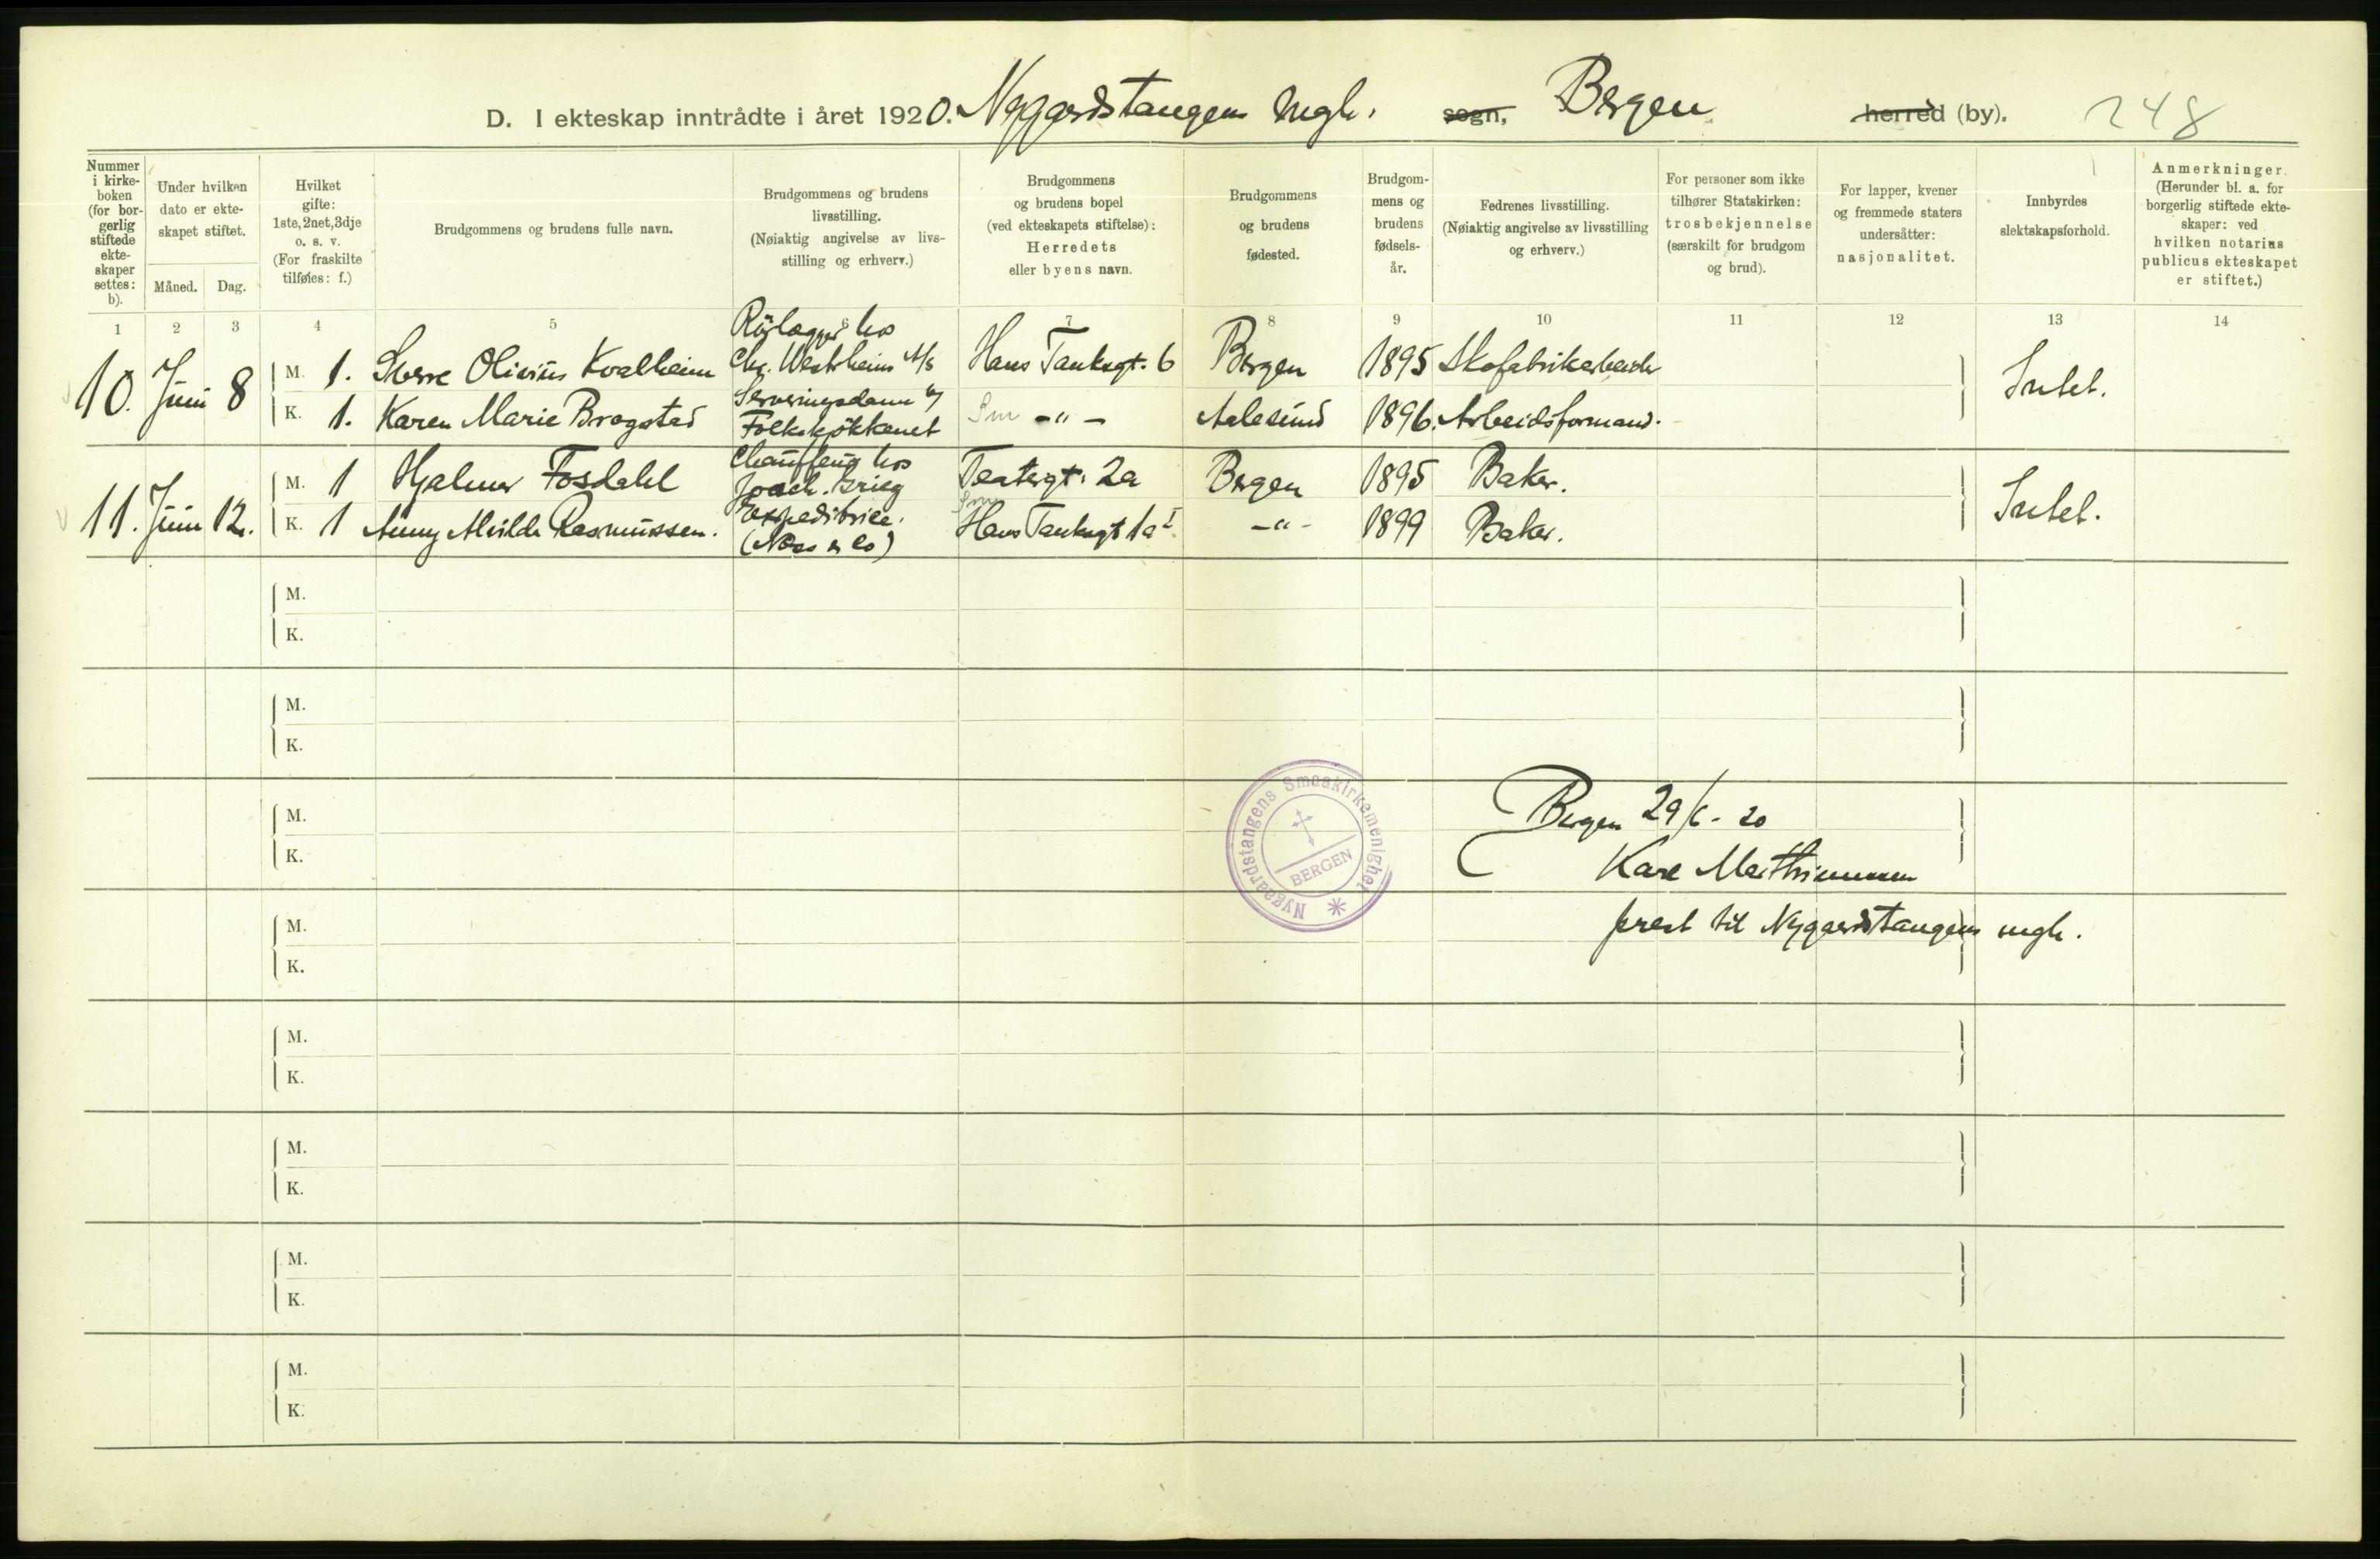 D. I ekteskap inntrådte i året 1920. Nygaardstangens mgh. sogn, Bergen herred (by). 248
Nummer i kirkeboken (for borgerlig stiftede ekteskaper settes: b).
Under hvilken dato er ekteskapet stiftet.
Måned. Dag.
Hvilket gifte: 1ste, 2net, 3dje o. s. v. (For fraskilte tilføies: f.)
Brudgommens og brudens fulle navn.
Brudgommens og brudens livsstilling. (Nøiaktig angivelse av livsstilling og erhverv.)
Brudgommens og brudens bopel (ved ekteskapets stiftelse): Herredets eller byens navn.
Brudgommens og brudens fødested.
Brudgommens og brudens fødselsår.
Fedrenes livsstilling. (Nøiaktig angivelse av livsstilling og erhverv.)
For personer som ikke tilhører Statskirken: trosbekjennelse (særskilt for brudgom og brud).
For lapper, kvener og fremmede staters undersåtter: nasjonalitet.
Innbyrdes slektskapsforhold.
Anmerkninger. (Herunder bl. a. for borgerlig stiftede ekteskaper: ved hvilken notarius publicus ekteskapet er stiftet.)
1 2 3 4 5 6 7 8 9 10 11 12 13 14
10. Juni 8 M. 1. Sverre Olivius Kvalheim Rörlægger hos Chr. Westrheim A/S Hans Tanksgt. 6 Bergen 1895 Skofabrikarbeider Intet.
K. 1. Karen Marie Brogstad Serveringsdame v/ Folkekjökkenet Sm -"- Aalesund 1896. Arbeidsformand.
11. Juni 12. M. 1 Hjalmar Fosdahl Chauffeur hos Joach. Grieg Teatergt. 2a Bergen 1895 Baker. Intet.
K. 1 Anny Alvilde Rasmussen. Expeditrice. (Næss & Co) Sm Hans Tanksgt 1a I -"- 1899 Baker.
M.
K.
M.
K.
M.
K.
M.
K.
M.
K.
M.
K.
M.
K.
M.
K.
Nygaardstangens Smaakirkemenighet
BERGEN
Bergen 29/6 - 20
prest til Nygaardstangens mgh.